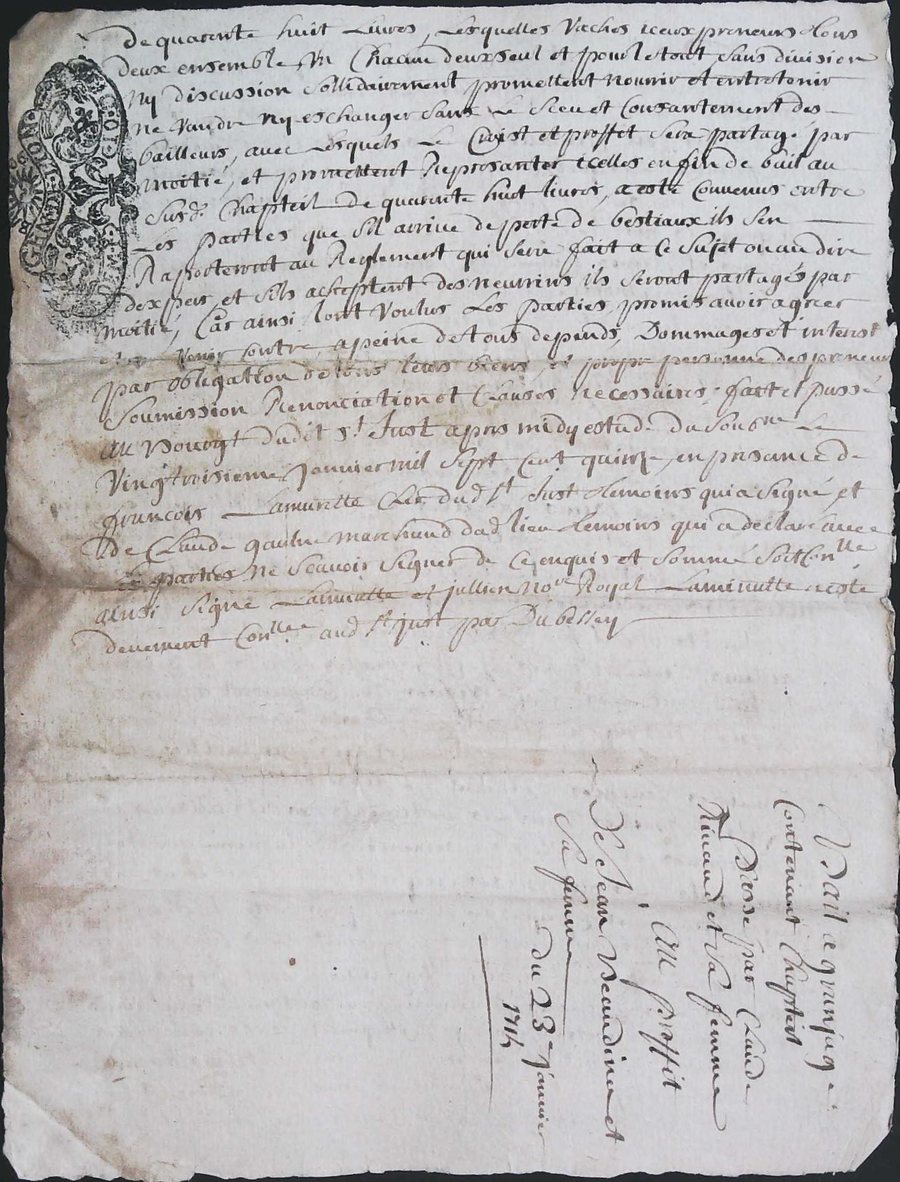 de quarente huit Livres, Lesquelles Vaches iceux preneurs tous
deux ensemble Un Chacun deux seul et pour le tout Sans division
Ny discussion Sollidairement promettent nourrir et entretenir
ne Vandre Ny eschanger Sans Le Sceu et Consantement des
bailleurs, avec Lesquels Le Croist et proffet Sera partagé par
moitié, et promettent Represanter icelles en fin de bail au
Susd. Chapteil De quarente huit livres, a esté Convenus entre
Les parties que Sil arrive de perte de bestiaux ils Sen
Raporteront au Reglement qui Sera fait a Ce Sujet ou au dire
dexpers, et Sils acheptent des neurrins ils Seront partagés par
moitié, Car ainsi Lont Voulus Les parties, promis avoir agreer
Venir Contre, a peine de tous depands, Dommages et interest
par obligation de tous leurs biens, et propre personne des preneurs
Soumission Renonciation et Clauses Necessaires, fait et passé
au Bourgt dudit St. Just apres midy estude du Sousne. Le
Vingt troisieme Janvier mil Sept Cent quinze, en presance de
françois Lamurette Clerc dud. St. Just temoins qui a Signé et
de Claude gaulne marchand dud. lieu temoins qui a declaré avec
Les parties Ne Scavoir Signer de Ce enquis et Sommé Soit Conlle
ainsi Signé Lamurette et Jullien Nore. Royal La minutte a esté
deuement Conllee aud. St. Just par Dubessey
GENER
Bail a granjage
Contenant Chapteil
Passé par Claude
Rimaud et Sa femme
Au proffit
De Jean Beaudinat et
Sa femme
du 23e Janvier
1715